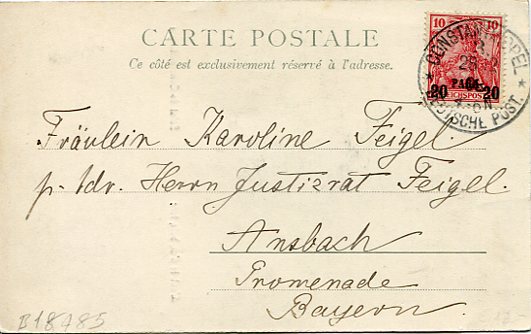 CARTE POSTALE
Ce côté est exclusivement réservé à l'adresse.
10 10
PARA
20 20
REICHSPOST
CONSTANTINOPEL
DEUTSCHE POST
Fräulein Karoline Feigel.
p. Adr. Herrn Justizrat Feigel.
Ansbach
Promenade
Bayern.
B18785